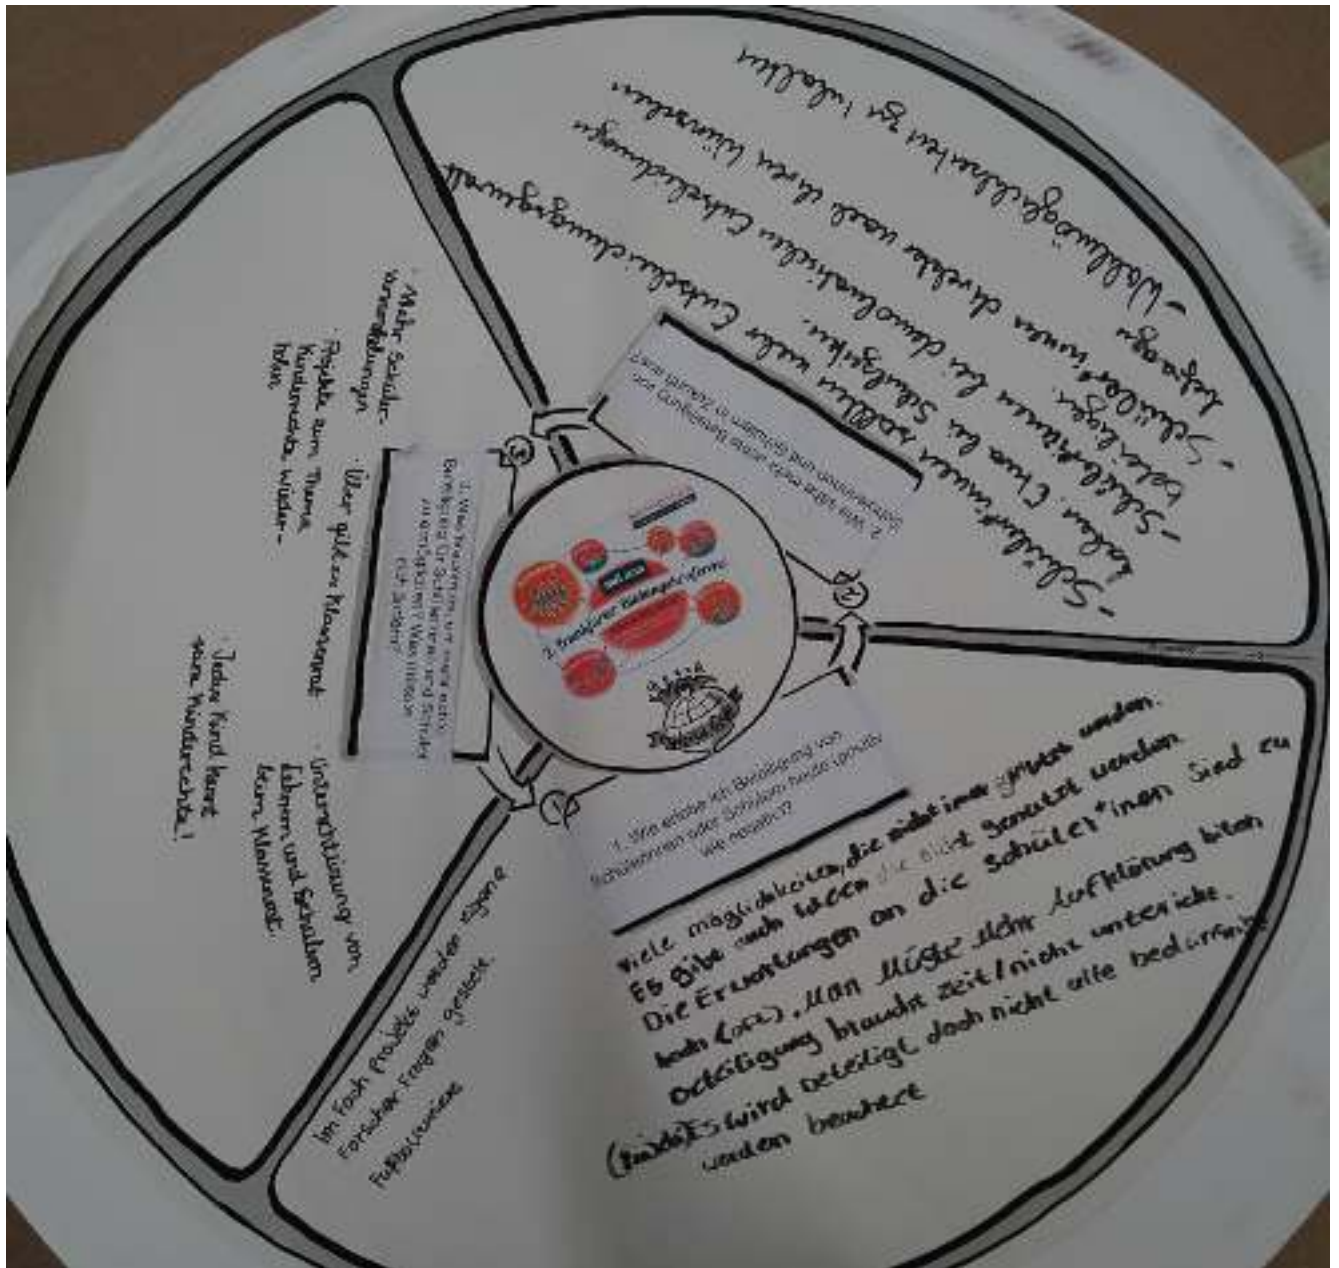 1. Wie erlebe ich Beteiligung von
Schülerinnen oder Schülern heute (positiv
wie negativ)?
viele möglichkeiten, die nicht imer genutzt werden.
Es gibt auch die nicht genutzt werden
Die Erwartungen an die Schüler*inen sind zu
hoch (oft). Man müste Mehr Aufklärung biten
beteiligung braucht zeit/nicht untericht.
Es wird beteiligt doch nicht alle bedürfnise
werden beachtet
Im Fach Projekt werden eigene
Forscher Fragen gestellt.
2. Wie sähe mehr echte Beteiligung von
Schülerinnen und Schülern in Zukunft aus?
- Schüler*innen sollten mehr Entscheidungsgewalt
haben. Etwa bei Schulzeiten.
- Schüler*innen bei demokratischen Entscheidungen
beteiligen
- Schüler*innen direkter nach ihren Wünschen
befragen
- Wahlmöglichkeiten zu Inhalten
3. Was brauchen wir um mehr echte
Beteiligung für Schülerinnen und Schüler
zu ermöglichen? Was müsste
sich ändern?
· Mehr Schüler-
versammlungen
· Projekte zum Thema
Kinderrechte wieder-
holen
· Über gibt en Klassenrat
· Unterschtüzung von
Lehrern und Schülern
beim Klassenrat.
· Jedes Kind kennt
seine Kinderrechte!
2. Frankfurter Bildungskonferenz